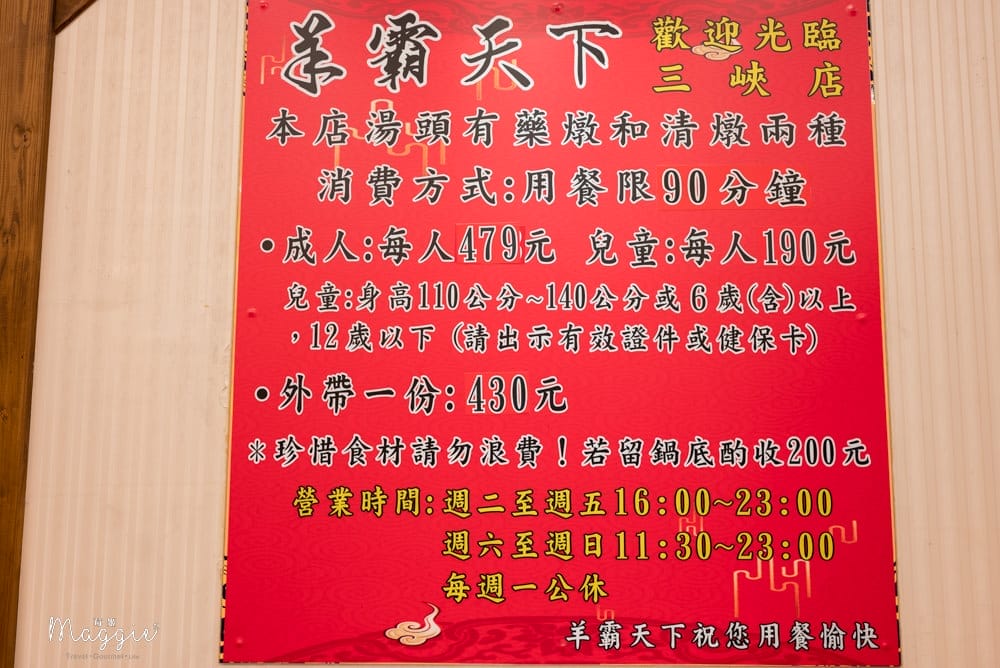 羊霸天下 歡迎光臨
三峽店
本店湯頭有藥燉和清燉兩種
消費方式:用餐限90分鐘
•成人:每人479元 兒童:每人190元
兒童:身高110公分~140公分或6歲(含)以上
,12歲以下(請出示有效證件或健保卡)
•外帶一份:430元
*珍惜食材請勿浪費!若留鍋底酌收200元
營業時間:週二至週五16:00~23:00
週六至週日11:30~23:00
每週一公休
羊霸天下祝您用餐愉快
Maggie
Travel·Gourmet·Life